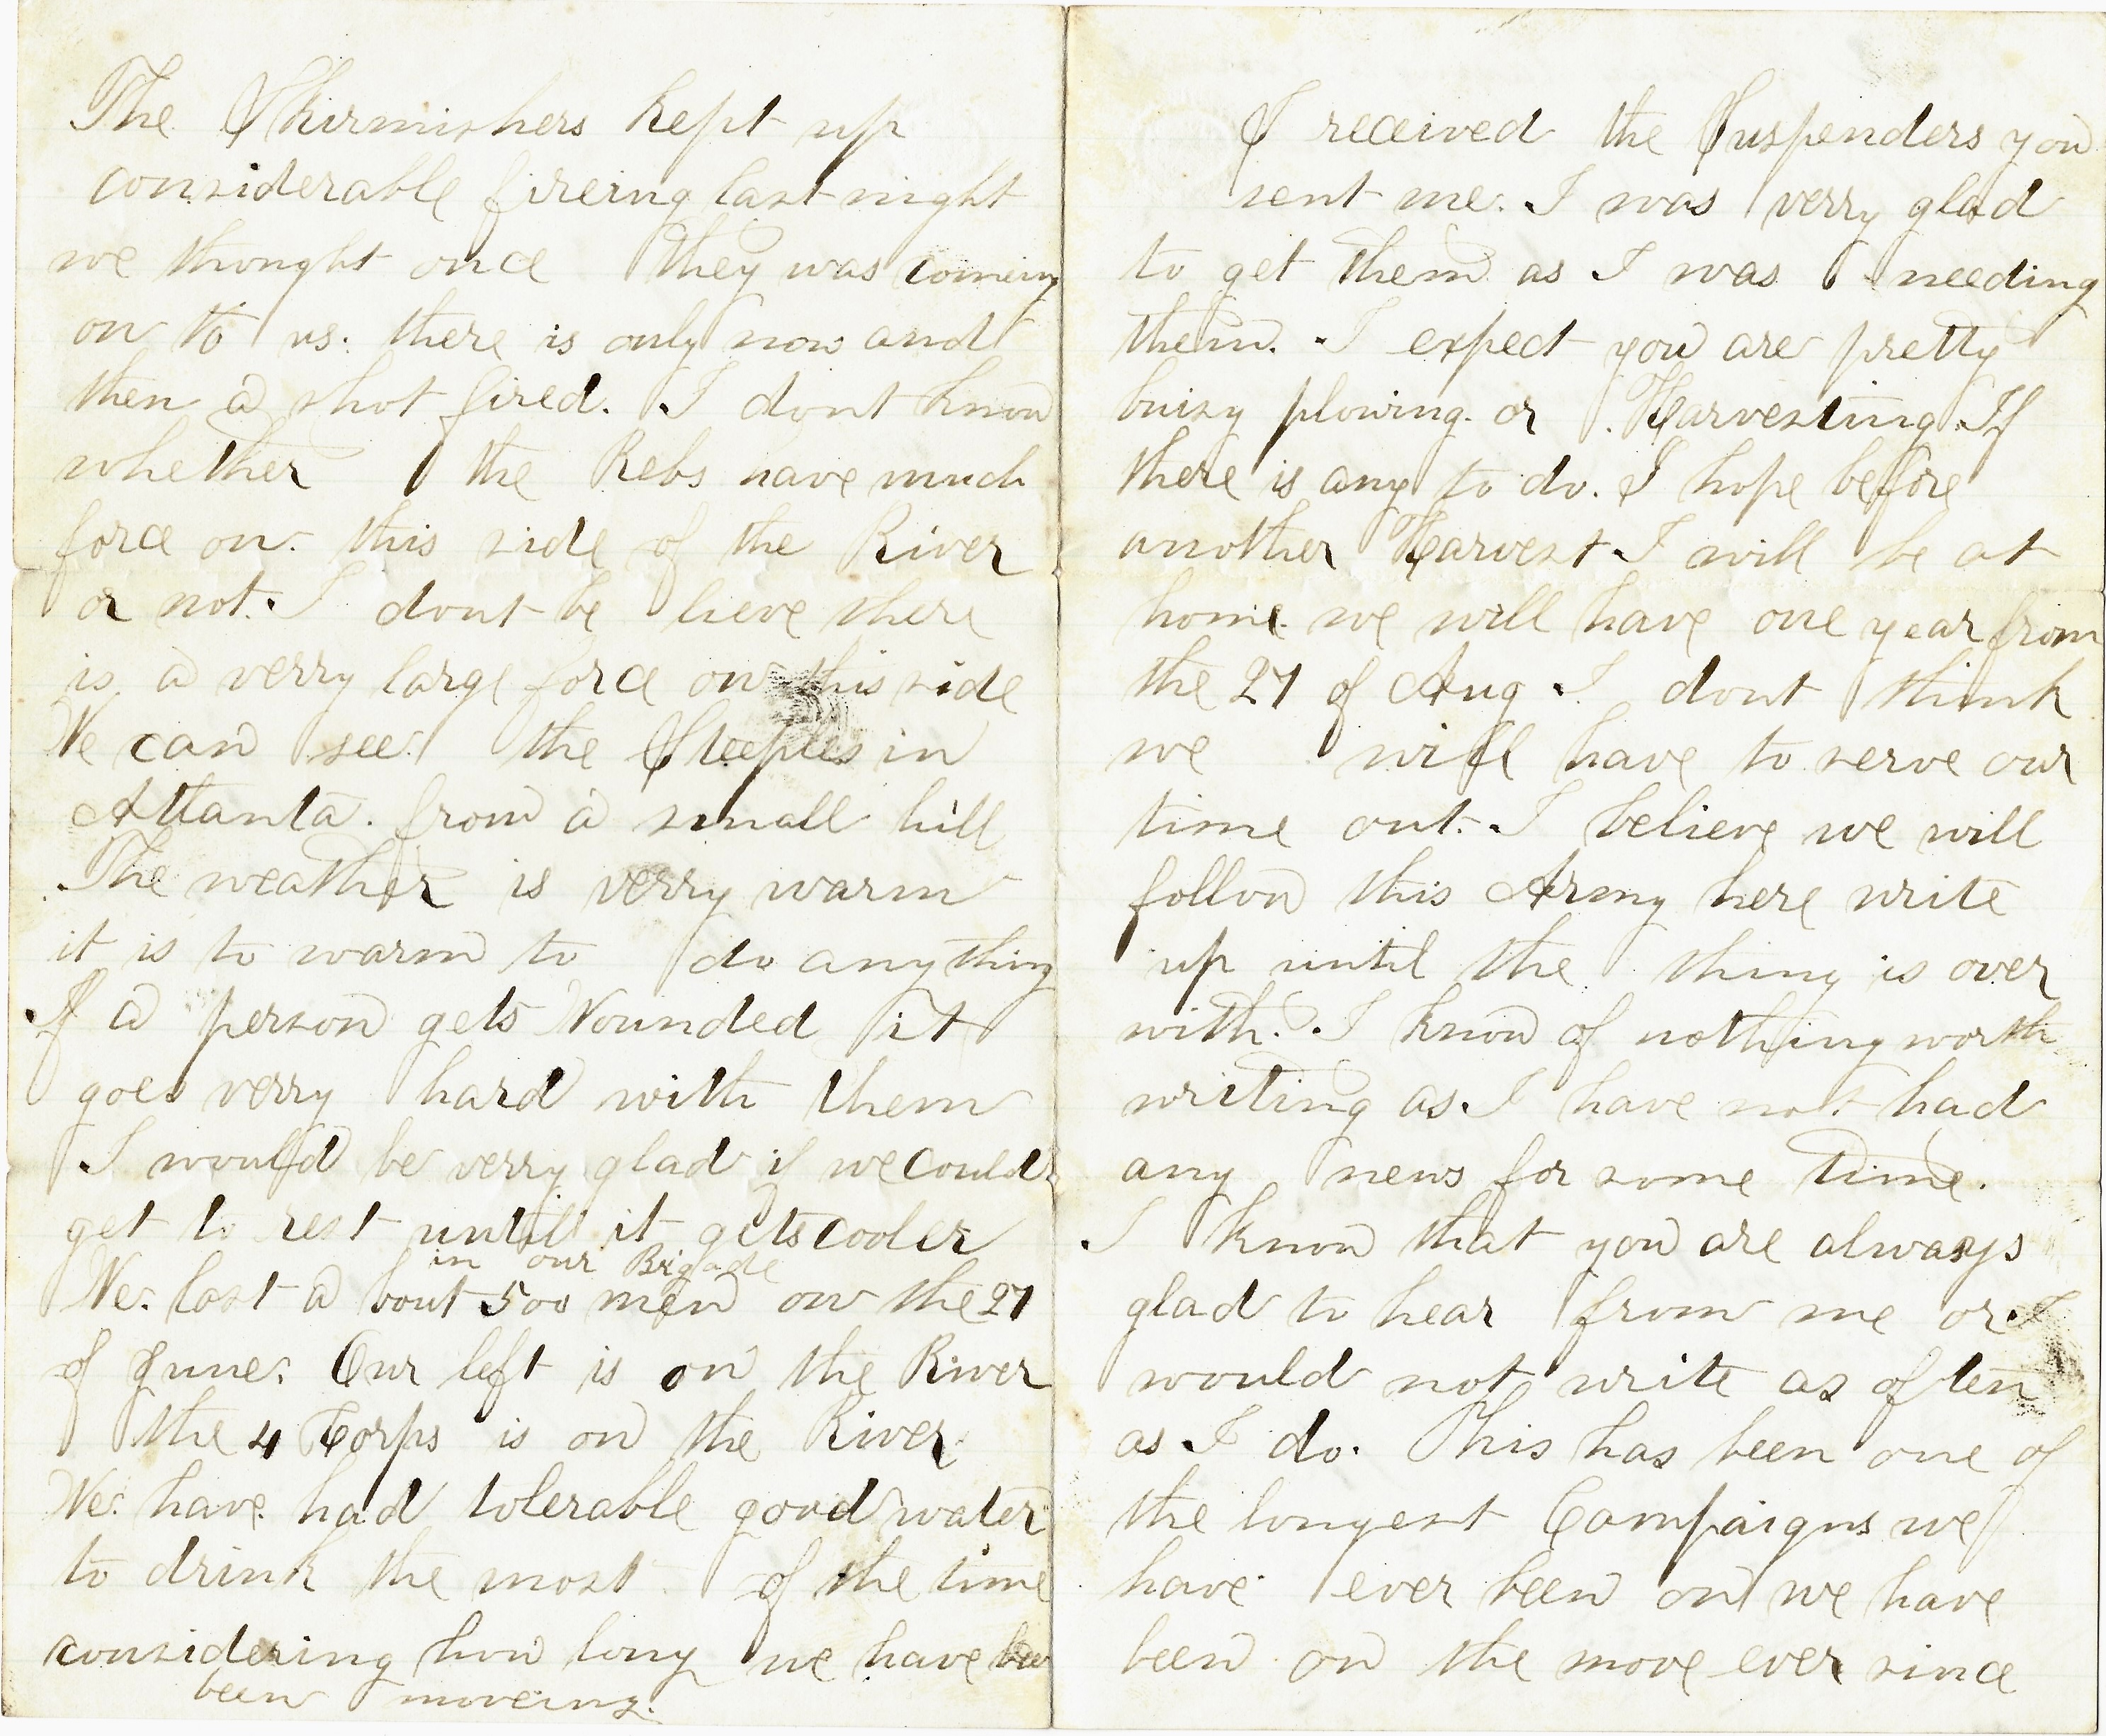 The Skirmishers kept up
considerable fireing last night
we thought once they was comeing
on to us. there is only now and
then a shot fired. I dont know
whether the Rebs have much
force on. this side of the River
or not. I dont be lieve there
is a verry large force on this side
We can see. the Steeples in
Attlanta. from a small hill
The weather is verry warm
it is to warm to do any thing
If a person gets Wounded it
goes verry hard with them
I would be verry glad if we could
get to rest untill it gets cooler
in our Brigade
We. lost a bout 500 men on the 27
of June. Our left is on the River
the 4 Corps is on the River
We. have had tolerable good water
to drink the most of the time
considering how long we have bee
been moveing.
I received the Suspenders you
sent me. I was verry glad
to get them as I was needing
them. I expect you are pretty
buisy plowing. or Harvesting If
there is any to do. I hope before
another Harvest I will be at
home. we will have one year from
the 27 of Aug. I dont think
we will have to serve our
time out. I believe we will
follow this Army here write
up until the thing is over
with. I know of nothing worth
writing as. I have not had
any news for some time.
I know that you are always
glad to hear from me or I
would not write as of ten
as I do. This has been one of
the longest Campaigns we
have ever been on we have
been on the move ever since